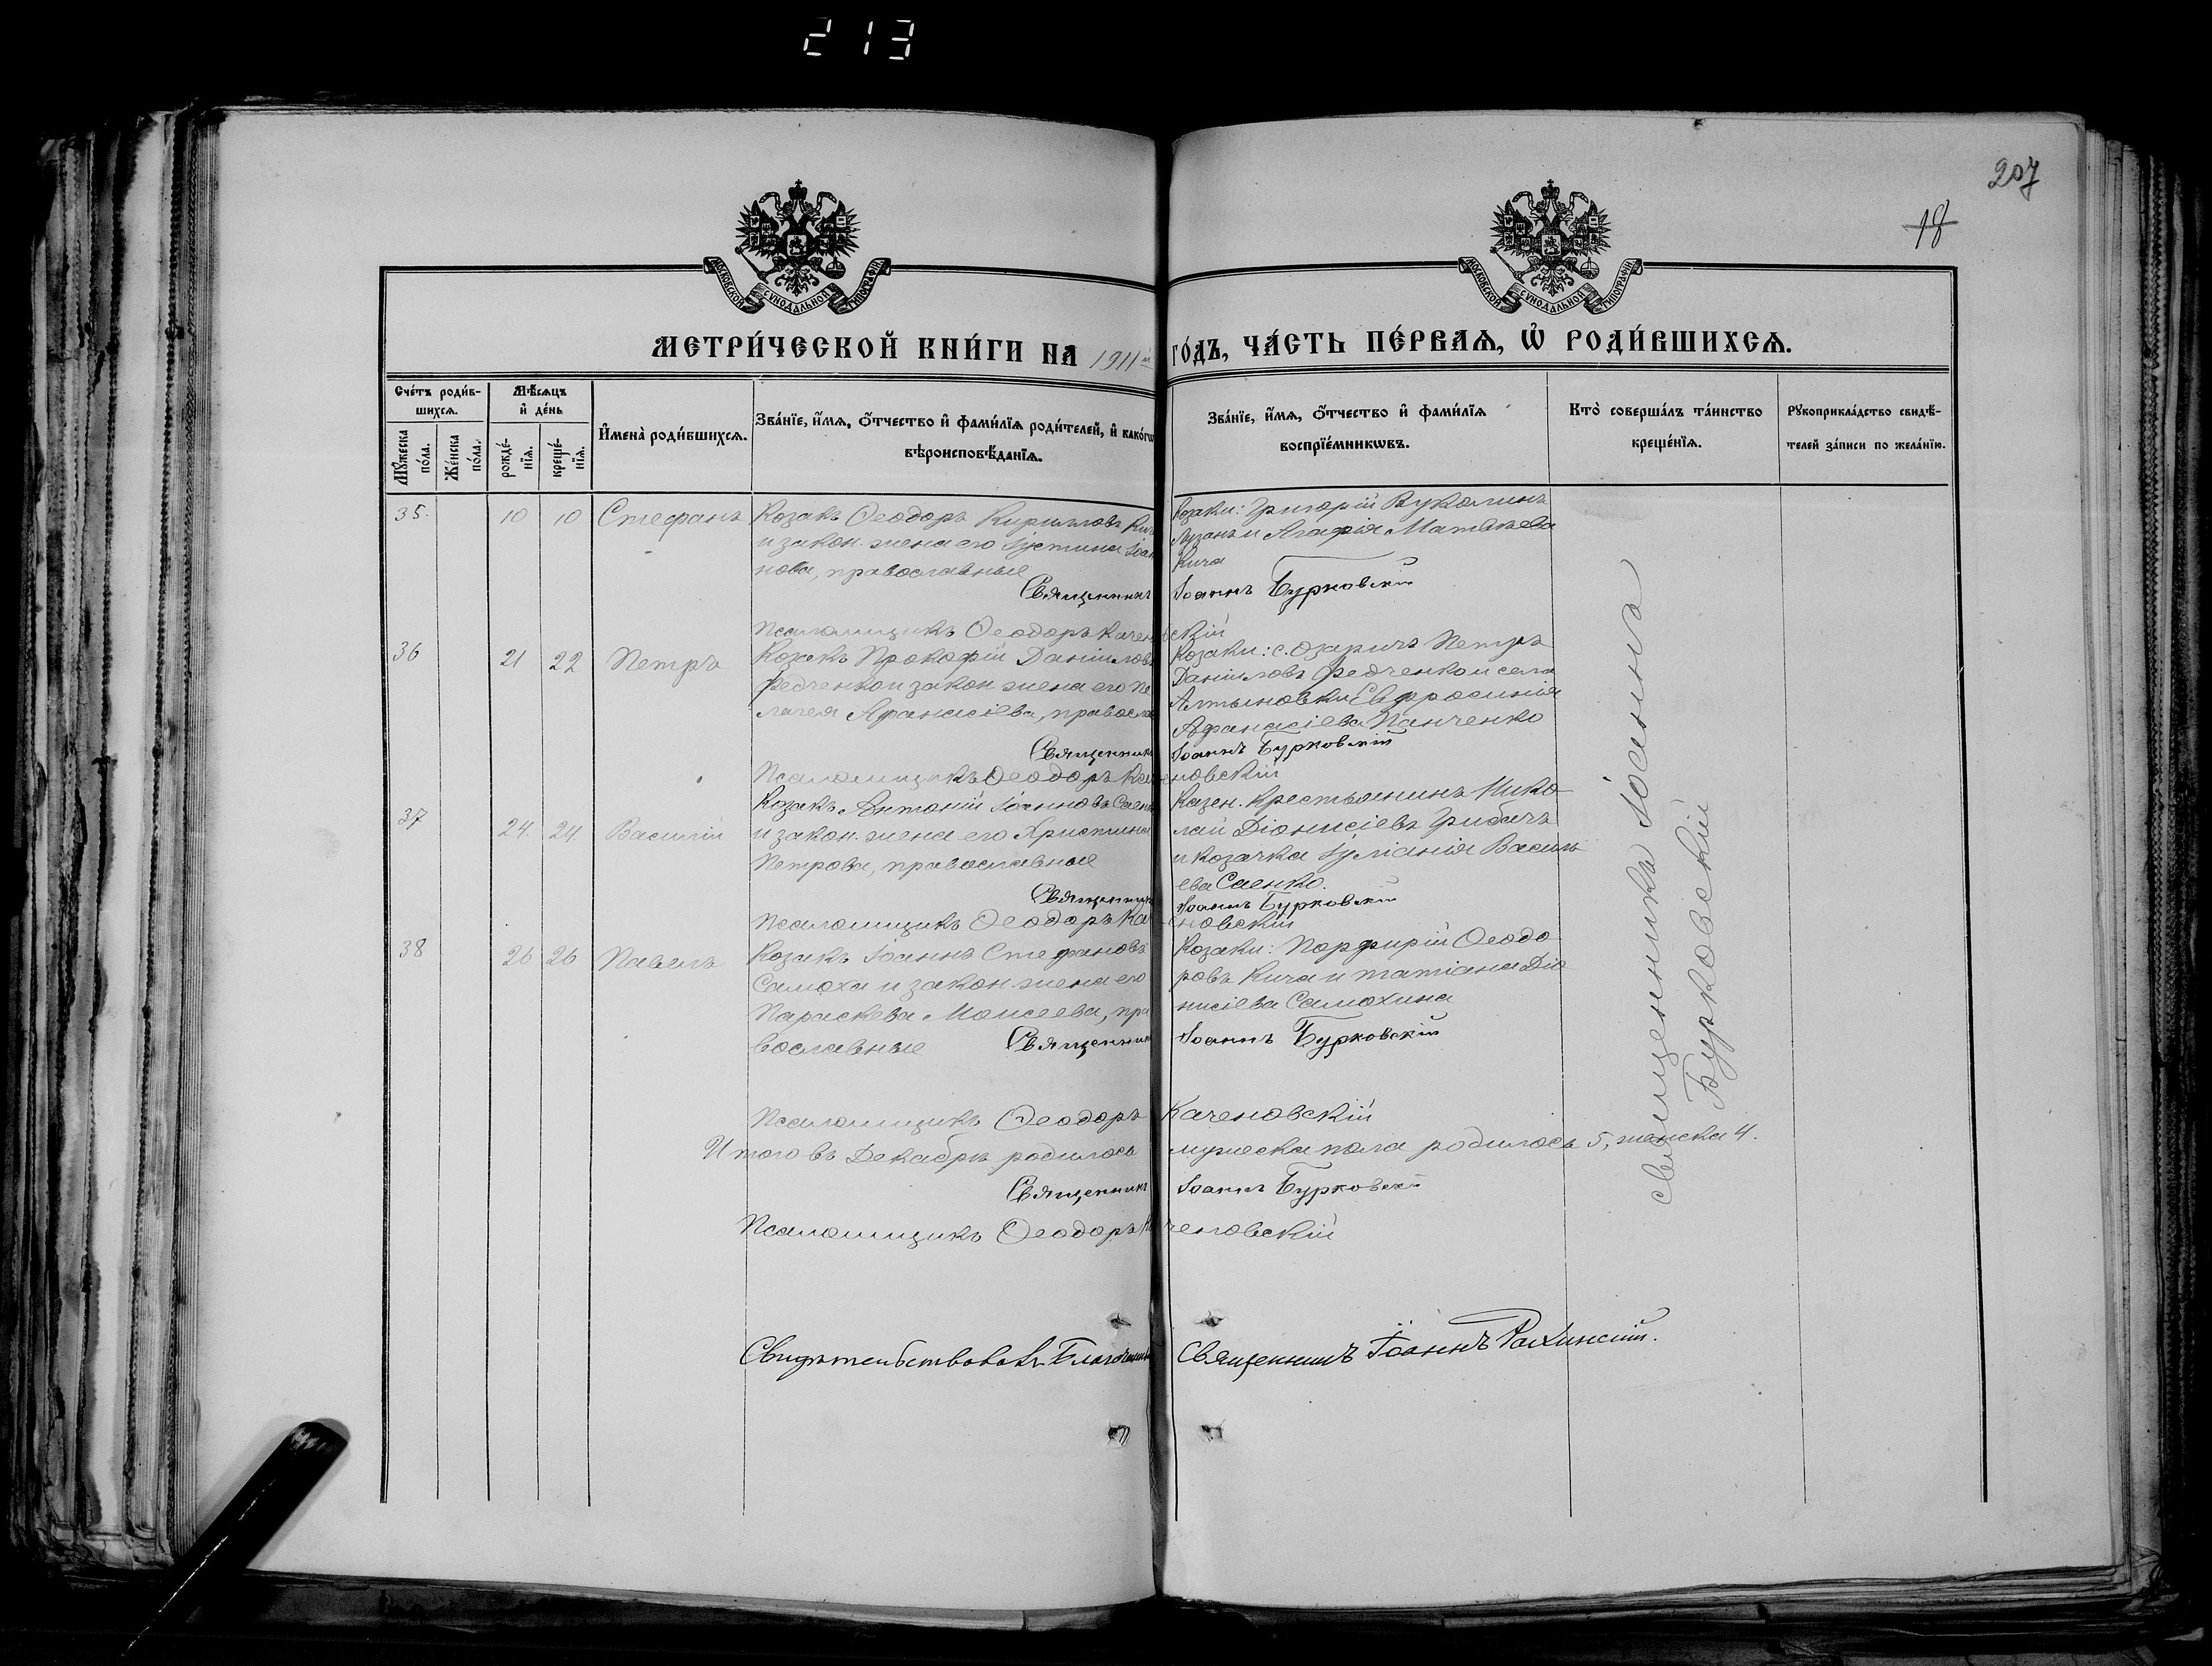 213
207
18
МОСКОВСКОЙ СѴНОДАЛЬНОЙ ТИПОГРАФІИ
МОСКОВСКОЙ СѴНОДАЛЬНОЙ ТИПОГРАФІИ
МЕТРИ́ЧЕСКОЙ КНИ́ГИ НА 1911й ГО́ДЪ, ЧА́СТЬ ПЕ́РВАѦ, Ѡ҆ РОДИ́ВШИХСѦ.
Сче́тъ роди́в-
шихсѧ.
Мꙋ́жеска по́ла.
Же́нска по́ла.
Мѣ́сѧцъ
и҆ де́нь
рожде́-
нїѧ.
креще́-
нїѧ.
И҆мена̀ роди́вшихсѧ.
Зва́нїе, и҆́мѧ, о҆́тчество и҆ фами́лїѧ роди́телей, и҆ како́гѡ
вѣроисповѣ́данїѧ.
Зва́нїе, и҆́мѧ, о҆́тчество и҆ фами́лїѧ
воспрїе́мникѡвъ.
Кто̀ соверша́лъ та́инство
креще́нїѧ.
Рꙋкоприкла́дство свидѣ́-
телей за́писи по жела́нїю.
35. 10 10 Стефанъ
Козакъ Ѳеодоръ Кирилловъ
и закон. жена его Іустина Іоан
нова, православные
Козаки: Григорій Вуколинъ
и Агафія Матвѣева
Кича
Священникъ Іоаннъ Бурковскій
Псаломщикъ Ѳеодоръ Каченовскій
36 21 22 Петръ
Козакъ Прокофій Даніиловъ
Федченко и закон. жена его Пе
лагея Афанасіева, правосла
Козаки: с. Озаричъ Петръ
Даніиловъ Федченко и села
Алтыновки Евфросинія
Афанасіева Панченко
Священникъ Іоаннъ Бурковскій
Псаломщикъ Ѳеодоръ Каченовскій
37 24 24 Василій
Козакъ Антоній Іоанновъ Саенко
и закон. жена его Христина
Петрова, православные
Казен. крестьянинъ Нико
лай Діонисіевъ Грибачъ
и козачка Іуліанія Василь
ева Саенко.
Священникъ Іоаннъ Бурковскій
Псаломщикъ Ѳеодоръ Каченовскій
38 26 26 Павелъ
Козакъ Іоаннъ Стефановъ
Самоха и закон. жена его
Параскева Моисеева, пра
вославные
Козаки: Порфирій Ѳеодо
ровъ Кича и Татіана Діо
нисіева Самохина
Священникъ Іоаннъ Бурковскій
Псаломщикъ Ѳеодоръ Каченовскій
Итого въ Декабрѣ родилось мужеска пола родилось 5, женска 4.
Священникъ Іоаннъ Бурковскій
Псаломщикъ Ѳеодоръ Каченовскій
священника Іоанна
Бурковскій
Свидѣтельствовалъ Благочинный Священникъ Іоаннъ